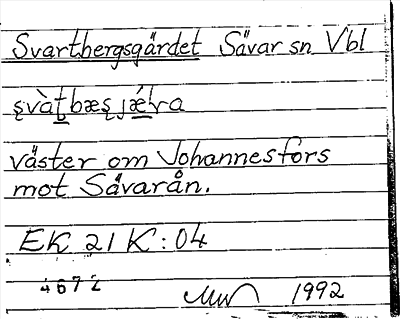 Svartbergsgärdet Sävar sn Vbl
väster om Johannesfors
mot Sävarån.
EK 21 K:04
4672
1992